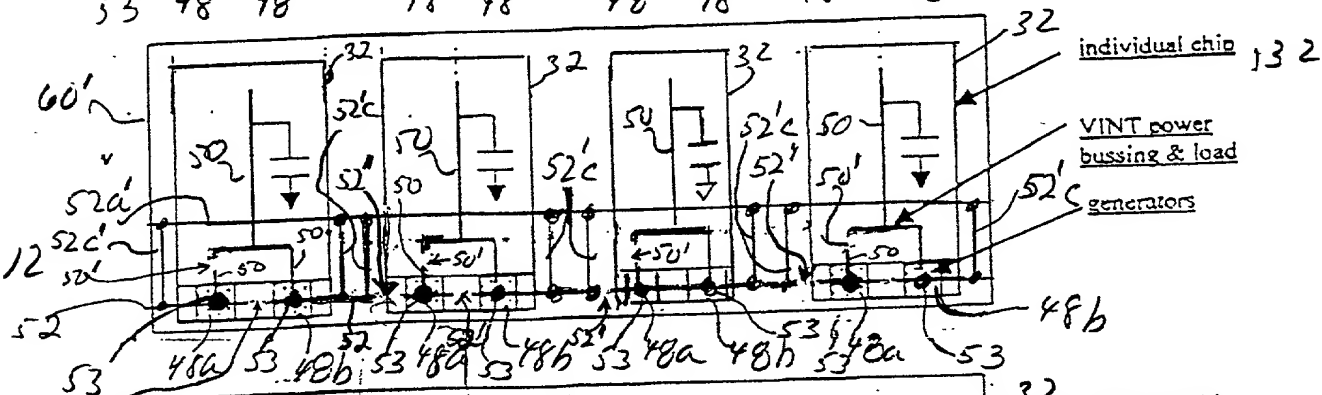 33 48 48 48 48 48 48
32
individual chip 132
60' 32 32 32
52'c 52'c
50 50 50 50
VINT power
bussing & load
52a' 52" 52'c 52" 50' 52'c
generators
12 52c' 50 50
50' 50 50' 50' 50
52
53 48a 53 48b 52 53 48a 53 48b 52' 53 48a 48b 53 53 48a 53 48b
32